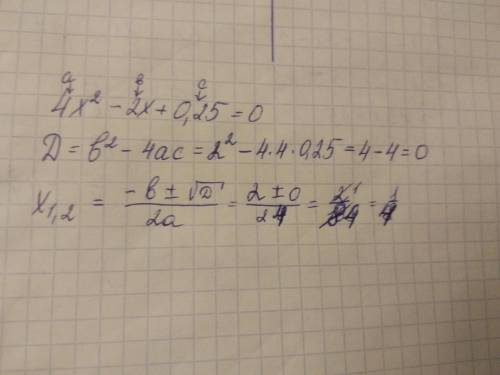 a в c
4x² - 2x + 0,25 = 0
D = в² - 4ac = 2² - 4·4·0,25 = 4 - 4 = 0
x₁,₂ = (-в ± √D) / 2a = (2 ± 0) / 2·4 = = 1/4